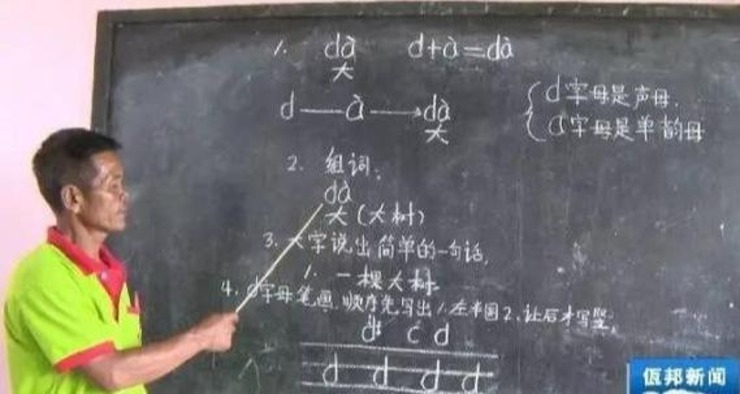 1. dà d+à=dà
大
d — à → dà
大
d字母是声母.
a字母是单韵母
2. 组词.
dà
大(大树)
3. 大字说出简单的一句话.
1. 一棵大树.
4. d字母笔画顺序先写出1.左半圆2.让后才写竖.
c d
d d d d
佤邦新闻